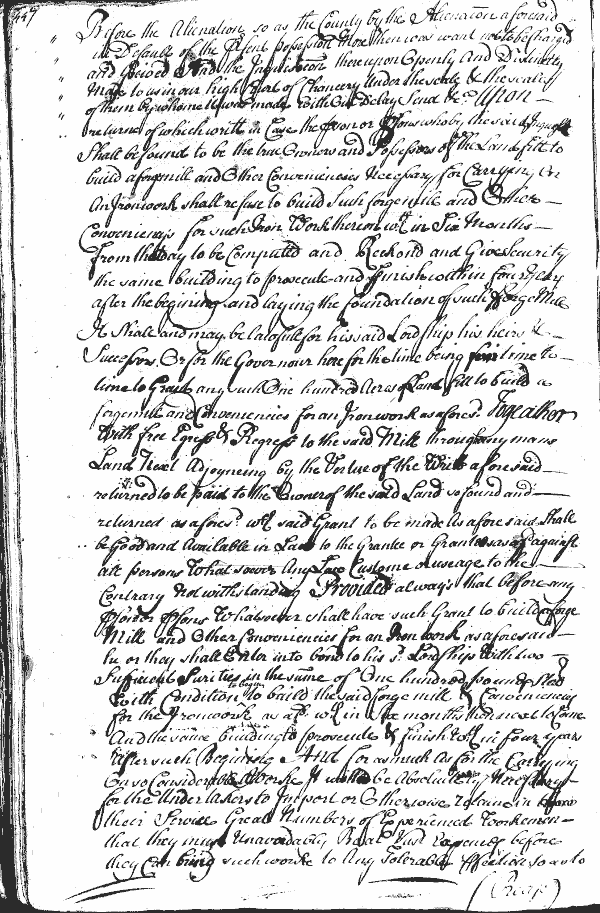 447
Before the Alienation, so as the County by the Alienation aforesaid
in Default of the present possession More then was want not be charged
and Greived And the Inquisition thereupon Openly And Distinctly
Made to us in our high Court of Chancery Under the seale & the seales
of them by whome it was made without Delay Send &c. Upon
returne of which writt in Case the person or persons who by the said Inquest
Shall be found to be the true Owners and Possessors of the Land fitt to
build a forge mill and Other Conveniencies Necessary for Carrying On
An Ironwork shall refuse to build Such forge mill and Other
Conveniencys for such Iron Work thereon wth in Six Months
from that day to be Computed and Reckond and Give Security
the same building to prosecute and finish within four years
after the begining and laying the foundation of such fforge Mill
It Shall and may be lawfull for his said Lordship his heirs &
Successors, Or for the Governour here for the time being from time to
time to Grant any such One hundred Acres of Land fitt to build a
forgemill and Conveniencies for an Ironwork as afores.d Togeather
With free Egress & Regress to the said Mill through any mans
Land Next Adjoyneing by the Vertue of the Writt aforesaid
returned to be paid to the Owner of the said Land so found and
returned as afores.d wch said Grant to be made As aforesaid Shall
be Good and Available in Law to the Grantee or Grantees as against
all persons Whatsoever Any Law Custome or useage to the
Contrary Notwithstanding Provided always that before any
person or persons Whatsoever shall have such Grant to build a forge
Mill and Other Conveniencies for an Iron work as aforesaid
he or they shall Enter into bond to his s.d Lordship With two
Sufficient Surities in the sume of One hundred pounds
With Condition to begin to build the said forge mill & Conveniencies
for the Ironwork as afd. wth in Six months then next to Come
And the same building to prosecute & finish wth in four years
After such Begining And forasmuch As for the Carrying
On so Considerable A Worke It will be Absolutely Necessary
for the Undertakers to Import or Otherwise retaine in
their Service Great Numbers of Experienced Workemen
that they must Unavoidably Be at Vast Expences before
they Can bring such worke to Any Tolerable so as to
(Reap)